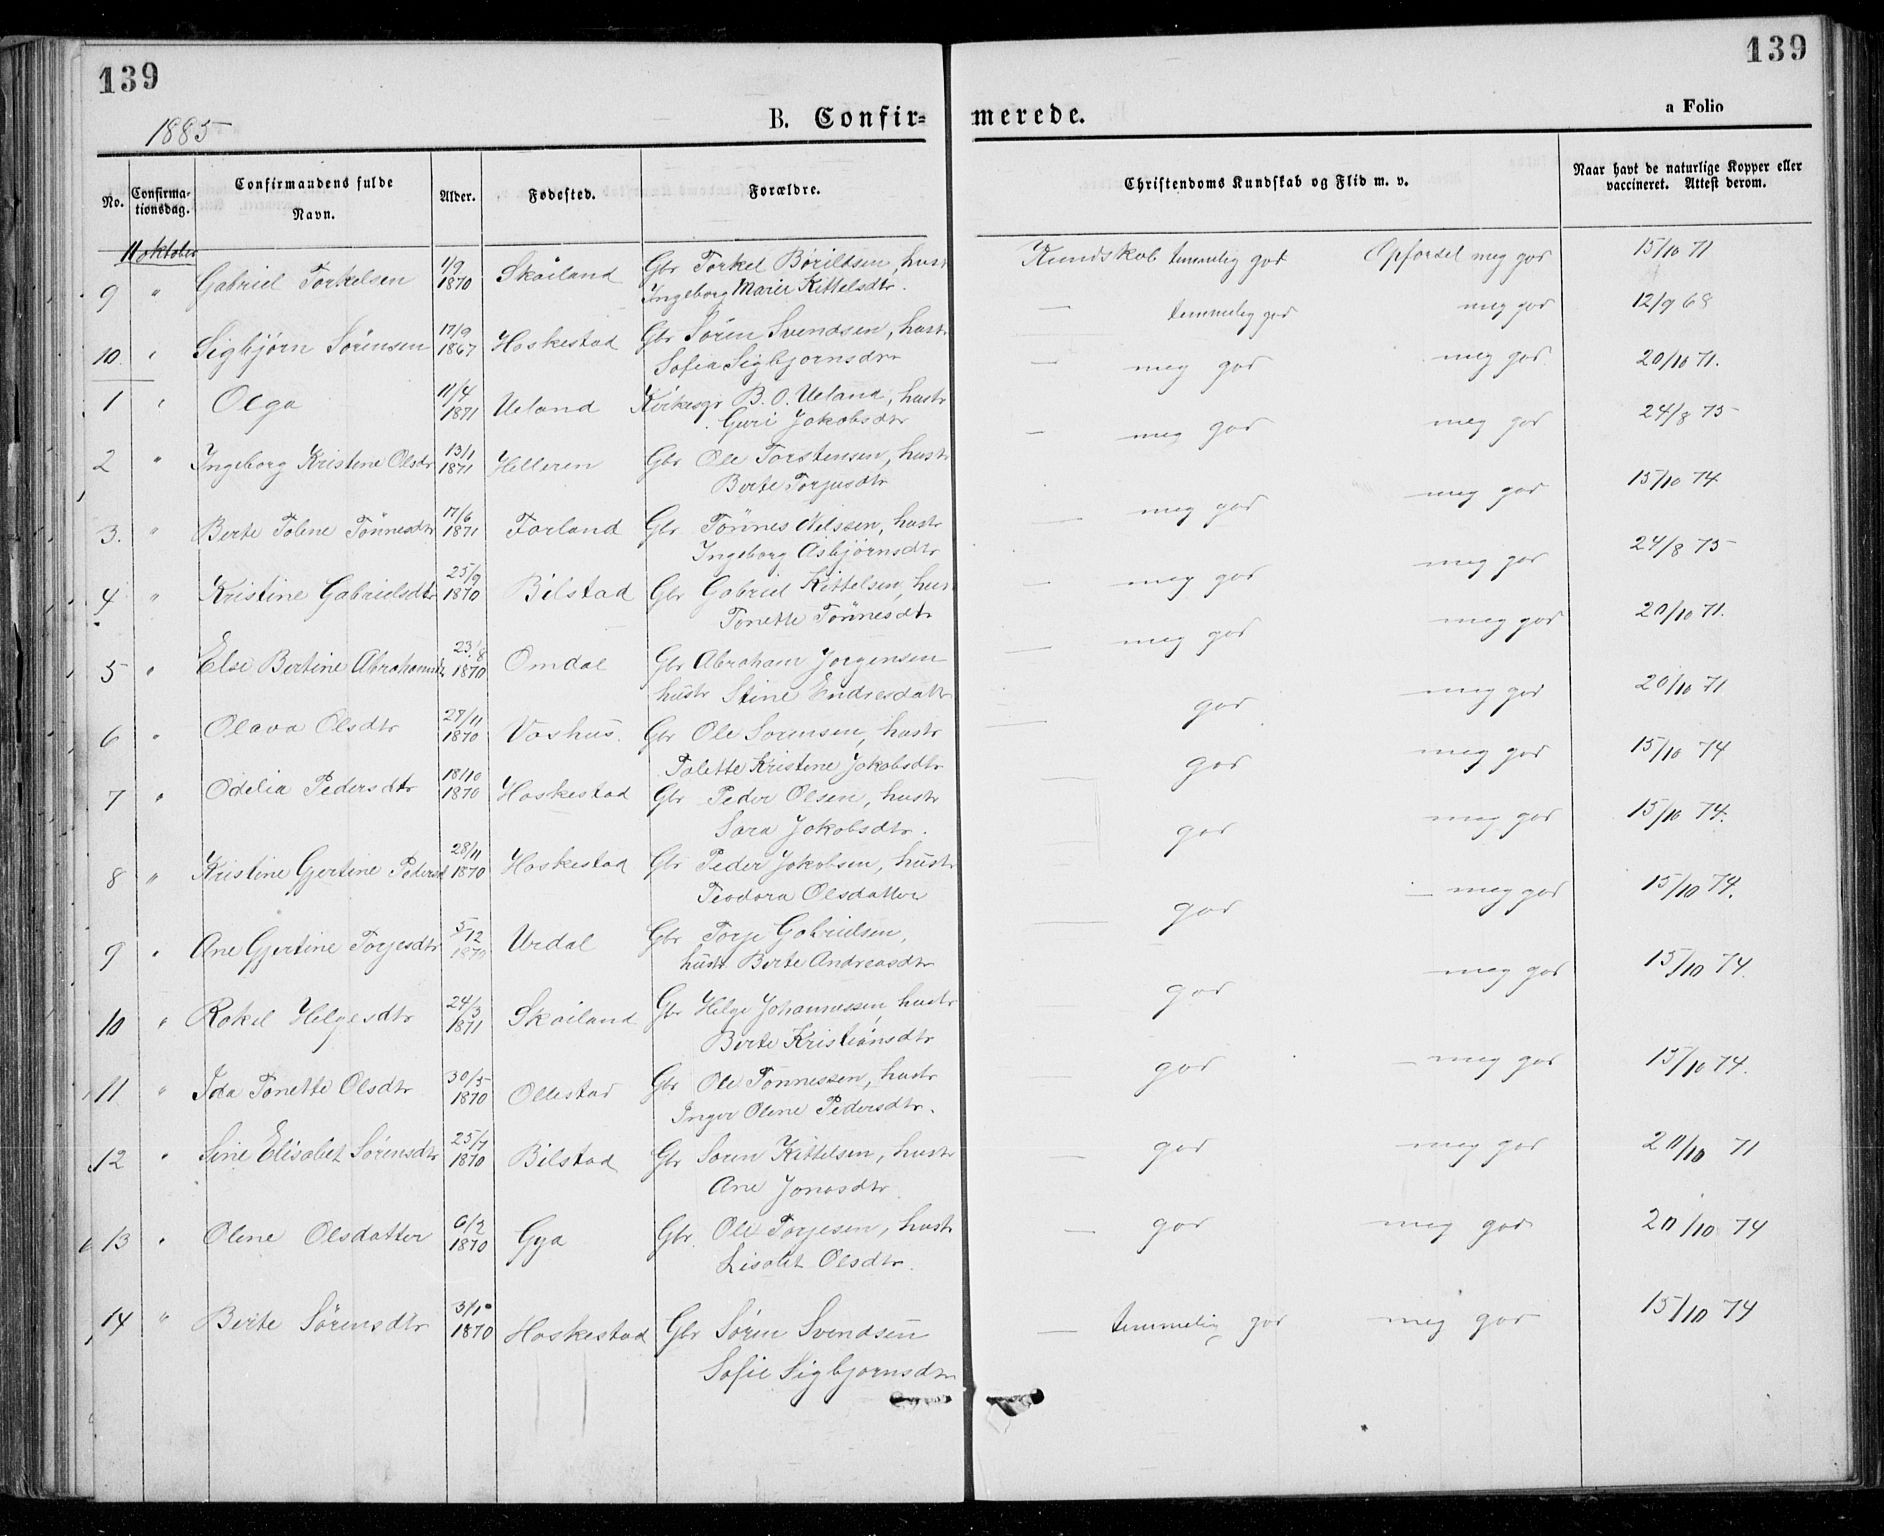 139
139
1885
B. Confir=
merede.
a Folio
No.
Confirma-
tionsdag.
Confirmandens fulde
Navn.
Alder.
Fødested.
Forældre.
Christendoms Kundskab og Flid m. v.
Naar havt de naturlige Kopper eller
vaccineret. Attest derom.
11 oktober
9 " Gabriel Torkelsen 1/9 1870 Skåiland Gbr Torkel Bårildsen, hustr
Ingeborg Marie Kittelsdtr.
Kundskab temmelig god Opførsel meg god 15/10 71
10. " Sigbjørn Sørensen 17/9 1867 Haskestad Gbr Søren Svendsen, hustr
Sofia Sigbjørnsdtr
— temmelig god meg god 12/9 68
1 " Olga 11/4 1871 Ueland Kirkesgr B. O. Ueland, hustr
Guri Jakobsdtr
— meg god meg god 20/10 71.
2 " Ingeborg Kristine Olsdtr 13/1 1871 Helleren Gbr Ole Torstensen, hustr
Berte Torjusdtr
— meg god meg god 24/8 75
3. " Berte Toline Tønnesdtr 17/6 1871 Førland Gbr Tønnes Nilssen, hustr
Ingeborg Asbjørnsdtr
— meg god meg god 15/10 74
4 " Kristine Gabrielsdtr 25/9 1870 Bilstad Gbr Gabriel Kittelsen, hustr
Tonette Tønnesdtr
— meg god meg god 24/8 75
5 " Else Bertine Abrahamsdtr 23/8 1870 Omdal Gbr Abraham Jørgensen
hustr Stine Endresdattr
— meg god meg god 20/10 71.
6 " Olava Olsdtr 27/11 1870 Vashus. Gbr Ole Sørensen, hustr
Talette Kristine Jakobsdtr
— god meg god 20/10 71
7 " Odelia Pedersdtr 18/10 1870 Haskestad Gbr Peder Olsen, hustr
Sara Jakobsdtr.
— god meg god 15/10 74
8 " Kristine Gjertine Pedersd 28/11 1870 Haskestad Gbr Peder Jakobsen, hustr
Teodora Olsdatter
— god meg god 15/10 74.
9 " Ane Gjertine Torjesdtr 5/12 1870 Urdal Gbr Torje Gabrielsen,
hustr Berte Andreasdtr
— god — meg god 15/10 74.
10 " Rakel Helgesdtr 24/3 1871 Skåiland Gbr Helge Johannessen, hustr
Berte Kristiansdtr
— god meg god 15/10 74.
11 " Ida Tonette Olsdtr 30/5 1870 Ollestad Gbr Ole Tønnessen, hustr
Inger Oline Pedersdtr.
— god — meg god 15/10 74.
12 " Sine Elisabet Sørensdtr 25/7 1870 Bilstad Gbr Søren Kittelsen, hustr
Ane Jonasdtr
— god meg god 20/10 71
13 " Oline Olsdatter 6/2 1870 Gya Gbr. Ole Torjesen, hustr
Lisabet Olsdtr.
— god meg god 20/10 74
14 " Berte Sørensdtr 3/10 1870 Haskestad Gbr Søren Svendsen
Sofie Sigbjørnsdtr
— temmelig god meg god 15/10 74